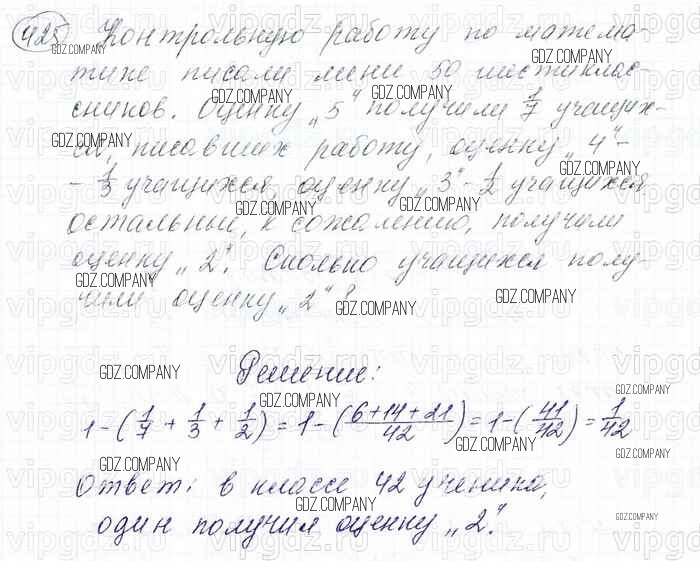 425 Контрольную работу по матема-
тике писали менее 50 шестиклас-
сников. Оценку „5" получили 1/7 учащих-
ся, писавших работу, оценку „4"-
- 1/3 учащихся, оценку „3"- 1/2 учащихся
остальные, к сожалению, получили
оценку „2". Сколько учащихся полу-
чили оценку „2"?
Решение:
1-(1/7 + 1/3 + 1/2) = 1-((6+14+21)/42) = 1-(41/42) = 1/42
Ответ: в классе 42 ученика,
один получил оценку „2".